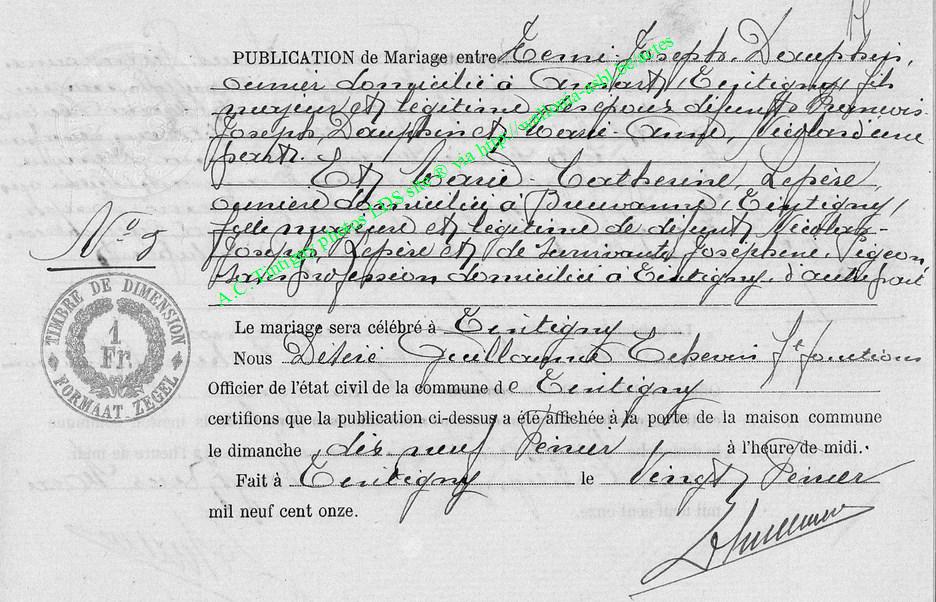 PUBLICATION de Mariage entre Henri Joseph Dauphin,
ouvrier domicilié à Ansart, Tintigny, fils
majeur et légitime des époux défunts François-
Joseph, Dauphin et Marie-Anne, Nicolas d'une
part.
Et Marie-Catherine, Lepère,
ouvrière domiciliée à Breuvanne, Tintigny,
fille majeure et légitime de défunt Nicolas-
Joseph, Lepère et de survivante Joséphine, Pigeon,
sans profession domiciliée à Tintigny, d'autre part
N° 5
TIMBRE DE DIMENSION
1
Fr.
FORMAAT ZEGEL
Le mariage sera célébré à Tintigny
Nous Désiré Guillaume Echevin ff fonctions
Officier de l'état civil de la commune de Tintigny
certifions que la publication ci-dessus a été affichée à la porte de la maison commune
le dimanche dix neuf février à l'heure de midi.
Fait à Tintigny le vingt février
mil neuf cent onze.
A.C. Tintigny photos LDS site ® via http://